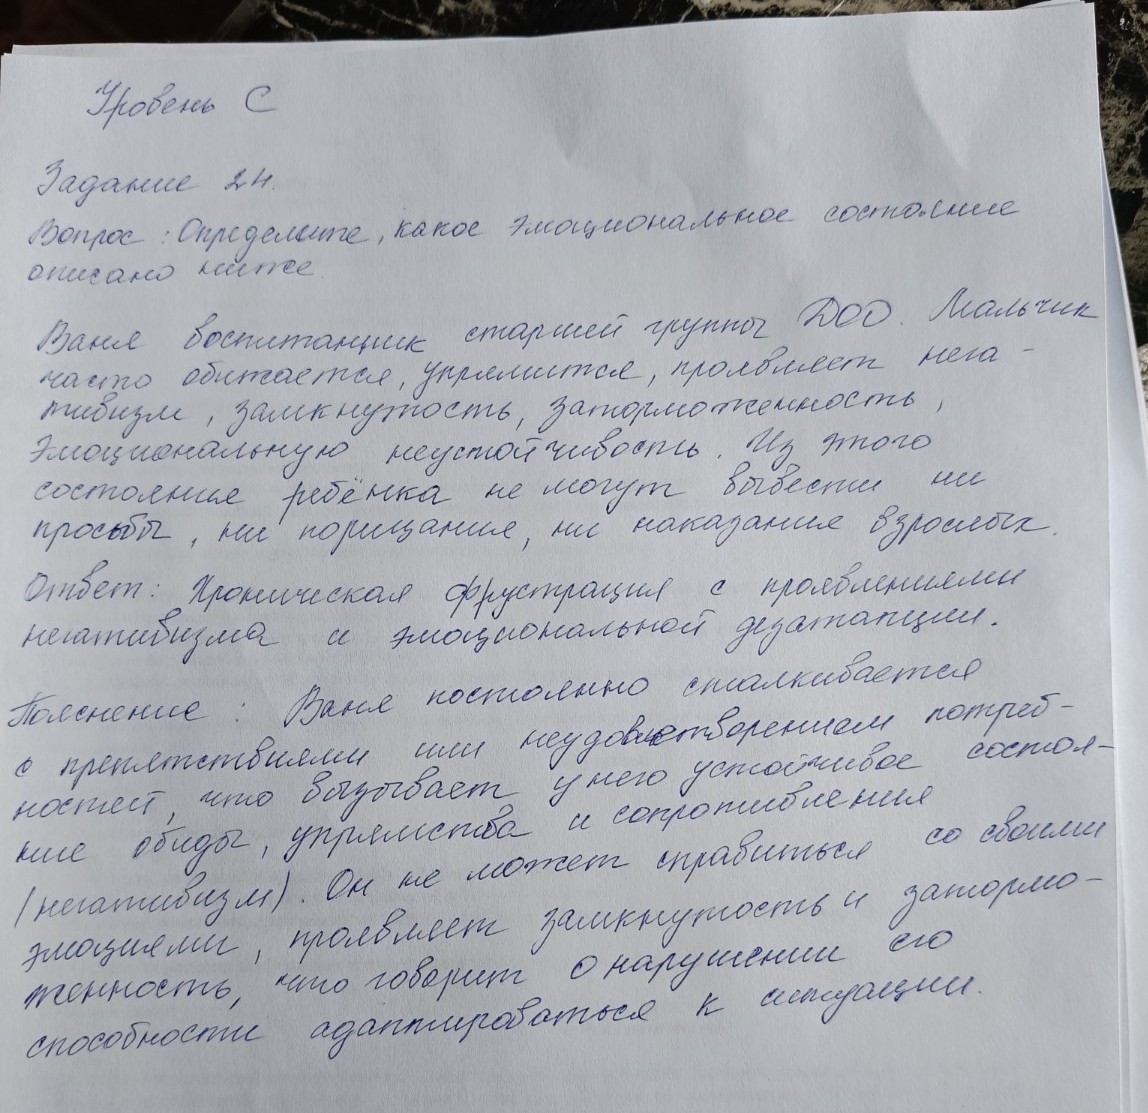 Уровень С
Задание 24.
Вопрос: Определите, какое эмоциональное состояние
описано ниже.
Ваня воспитанник старшей группы ДОО. Мальчик
часто обижается, упрямится, проявляет нега-
тивизм, замкнутость, заторможенность,
эмоциональную неустойчивость. Из этого
состояния ребёнка не могут вывести ни
просьбы, ни порицания, ни наказания взрослых.
Ответ: Хроническая фрустрация с проявлениями
негативизма и эмоциональной дезатапции.
Пояснение: Ваня постоянно сталкивается
с препятствиями или неудовлетворением потреб-
ностей, что вызывает у него устойчивое состоя-
ние обиды, упрямства и сопротивления
(негативизм). Он не может справиться со своими
эмоциями, проявляет замкнутость и затормо-
женность, что говорит о нарушении его
способности адаптироваться к ситуации.